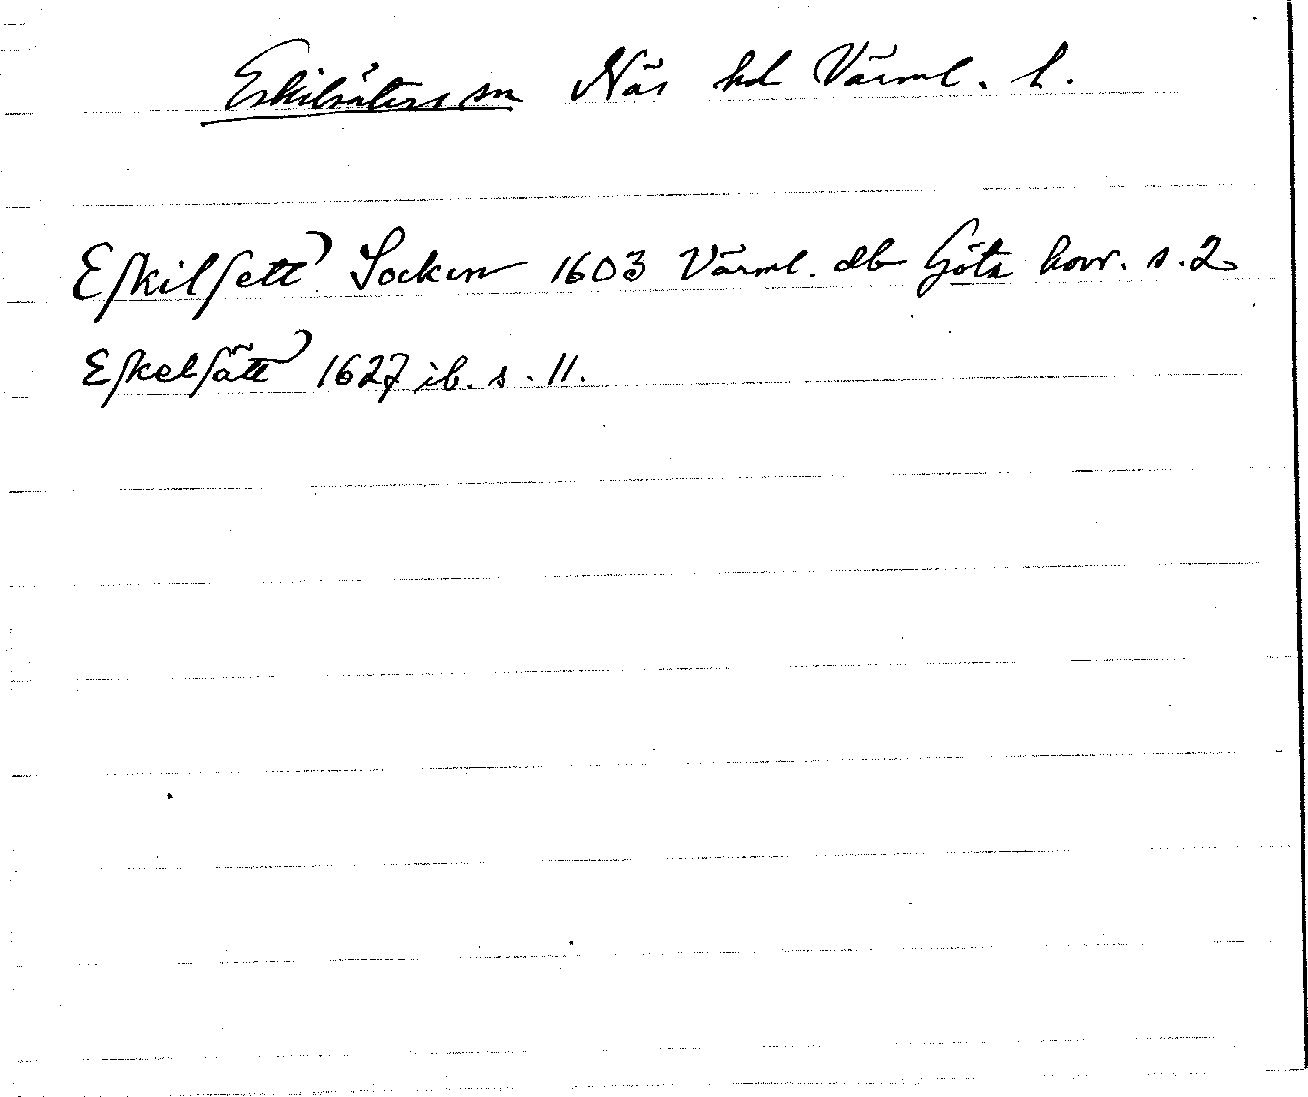 Eskilsäters sn Näs hd Värml. l.
Eſkilſett Socken 1603 Värml. db Göta hovr. s. 2
Eſkelſätt 1627 ib. s. 11.